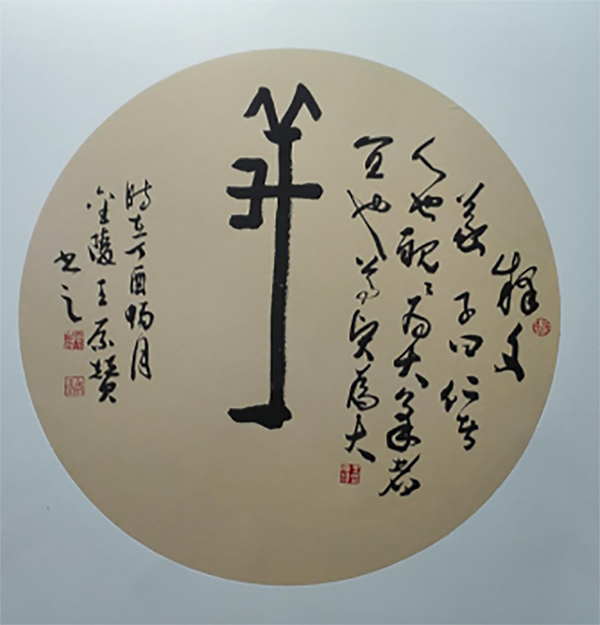 釋文
義 子曰仁者
人也親親為大義者
宜也尊賢為大
義
時在丁酉暢月
金陵王原贊
書之